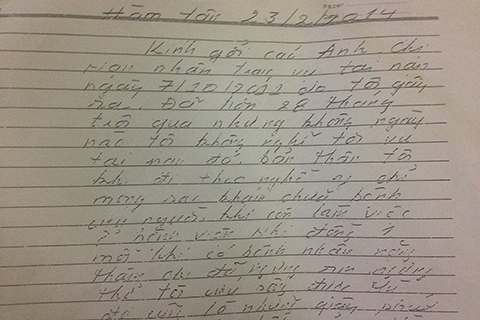 Hàm Tân 23/2/2014
Kính gởi các Anh, Chị
nạn nhân trong vụ tai nạn
ngày 7/10/2012 do tôi gây
ra. Đã hơn 28 tháng
trôi qua nhưng không ngày
nào tô không nghĩ tới vụ
tai nạn đó, bản thân tôi
khi đi theo nghề y chỉ
mong sao khám chữa bệnh
cứu người, khi còn làm việc
ở bệnh viện Nhi đồng 1
mỗi khi có bệnh nhân nặng
thậm chí đã ngưng tim ngưng
thở tô cứu sống được
đó